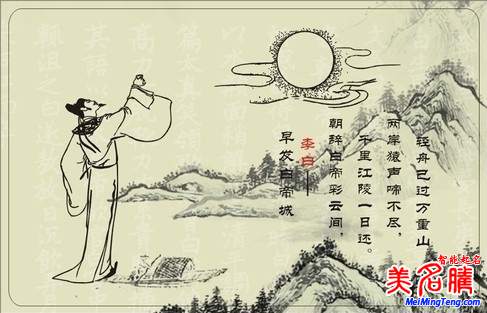 早发白帝城
李白——
朝辞白帝彩云间，
千里江陵一日还。
两岸猿声啼不尽，
轻舟已过万重山
智能起名
美名腾
MeiMingTeng.com